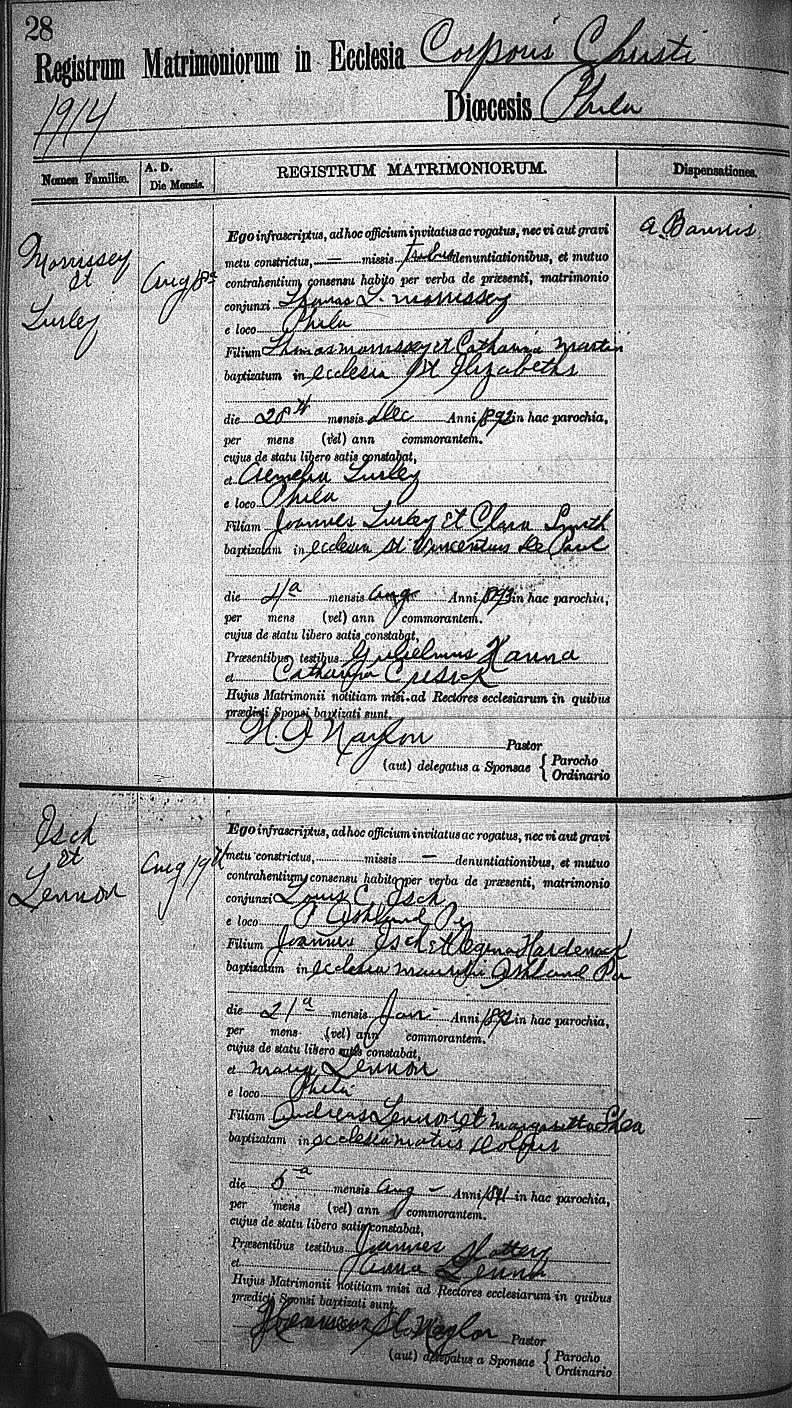 28
Registrum Matrimoniorum in Ecclesia Corporis Christi
1914 Diœcesis Phila
Nomen Familiæ. A. D. Die Mensis. REGISTRUM MATRIMONIORUM. Dispensationes.
Morrissey et Turley
Aug 18a
a Bannis
Ego infrascriptus, ad hoc officium invitatus ac rogatus, nec vi aut gravi
metu constrictus, — missis tribus denuntiationibus, et mutuo
contrahentium consensu habito per verba de præsenti, matrimonio
conjunxi Thomas L. Morrissey
e loco Phila
Filium Thomas Morrissey et Catharina Martin
baptizatum in ecclesia St Elizabeths
die 28th mensis Dec Anni 1892 in hac parochia,
per mens (vel) ann commorantem.
cujus de statu libero satis constabat,
et Turley
e loco Phila
Filiam Joannes Turley et Clara Smith
baptizatam in ecclesia St Vincentius De Paul
die 4a mensis Aug Anni 1893 in hac parochia,
per mens (vel) ann commorantem.
cujus de statu libero satis constabat,
Præsentibus testibus Gulielmus Hanna
et Catharina Cusack
Hujus Matrimonii notitiam misi ad Rectores ecclesiarum in quibus
prædicti Sponsi baptizati sunt.
Naylon Pastor
(aut) delegatus a Sponsae { Parocho
Ordinario
Isch et Lennon
Aug 19th
Ego infrascriptus, ad hoc officium invitatus ac rogatus, nec vi aut gravi
metu constrictus, missis — denuntiationibus, et mutuo
contrahentium consensu habito per verba de præsenti, matrimonio
conjunxi Louis C. Isch
e loco Ashland Pa
Filium Joannes Isch et Regina
baptizatum in ecclesia Ashland Pa
die 21a mensis Jan Anni in hac parochia,
per mens (vel) ann commorantem.
cujus de statu libero satis constabat,
et Maria Lennon
e loco Phila
Filiam Andreas Lennon et Margaretta Shea
baptizatam in ecclesia
die 5a mensis Aug — Anni 1891 in hac parochia,
per mens (vel) ann commorantem.
cujus de statu libero satis constabat,
Præsentibus testibus Joannes Slattery
et Anna Lennon
Hujus Matrimonii notitiam misi ad Rectores ecclesiarum in quibus
prædicti Sponsi baptizati sunt.
Naylon Pastor
(aut) delegatus a Sponsae { Parocho
Ordinario